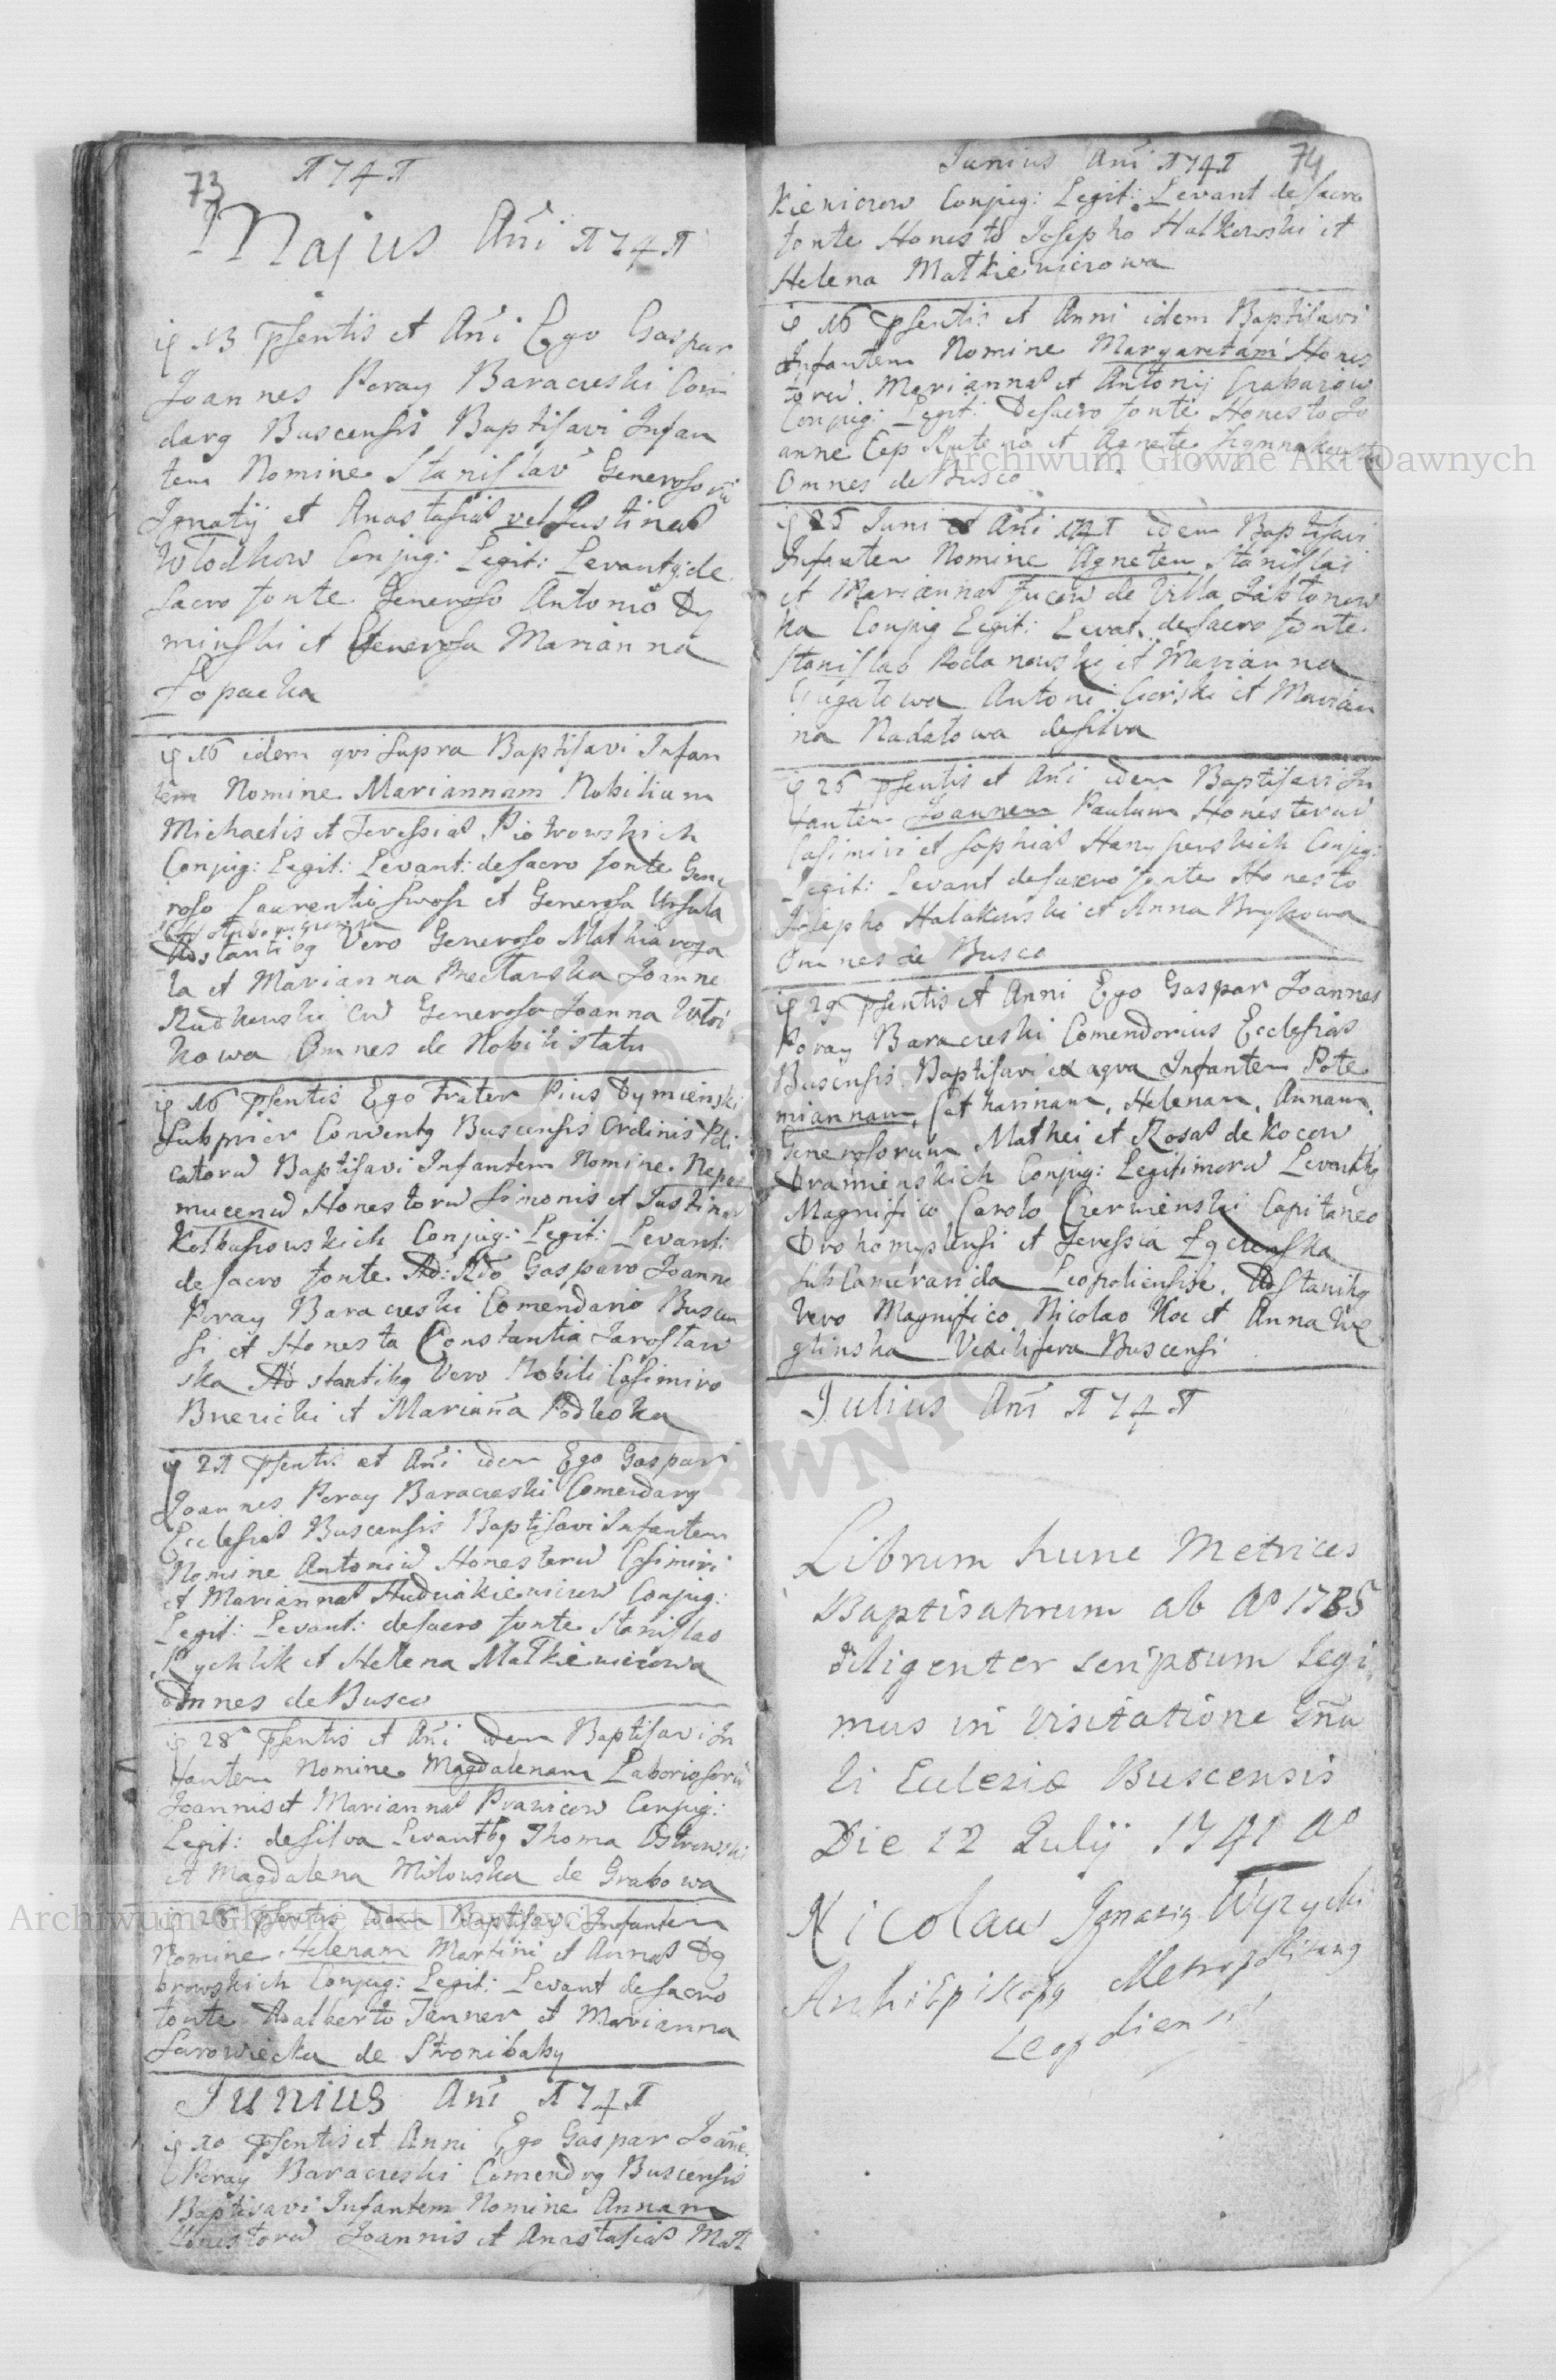 73
1741
Majus Añi 1741
13 psentis et Añi Ego Gaspar
Joannes Poray Baraczeski Com
darg Buscensis Baptisavi Infan
tem Nomine Stanislaū Generosorū
Ignatij et Anastasiae vel Justinae
Wlodkow Conjug: Legit: Levantg de
Sacro fonte Generoso Antonio Dy
minski et Generosa Marianna
Łopacka
16 idem qvi supra Baptisavi Infan
tem Nomine Mariannam Nobilium
Michaelis et Teressiae Piotrowskich
Conjug: Legit: Levant: de sacro fonte Gene
roso Laurentio et Generosa Ursula
Adstantibg Vero Generoso Mathia roga
la et Marianna Joanne
Rudkowski cū Generosa Joanna
kowa Omnes de Nobili statu
16 psentis Ego Frater Pius Dymienski
Subprior Conventg Buscensis Ordinis Pdi
catorū Baptisavi Infantem Nomine Nepo
mucenū Honestorū Simonis et Justinae
Kolbuszowskich Conjug: Legit: Levant:
de sacro fonte Ad: Rdo Gasparo Joanne
Poray Baraczeski Comendario Buscen
si et Honesta Constantia Jarostaw
ska Adstantibg Vero Nobili Casimiro
et Mariaña Podleska
21 psentis et Añi idem Ego Gaspar
Joannes Poray Baraczeski Comendarg
Ecclesiae Buscensis Baptisavi Infantem
Nomine Antoniū Honestorū Casimiri
et Mariannae Conjug:
Legit: Levant: de sacro fonte Stanislao
Rychlik et Helena Matkiewiczowa
omnes de Busco
28 psentis et Añi idem Baptisavi In
fantem Nomine Magdalenam Laboriosorū
Joannis et Mariannae Prawicow Conjug:
Legit: de silva Levantbg Thoma Ostrowski
et Magdalena Milowska de Grabowa
28 psentis idem Baptisavi Infantem
Nomine Helenam Martini et Annae Dą
browskich Conjug: Legit: Levant de sacro
fonte Adalberto Janner et Marianna
Sarowiecka de Stronibaby
Junius Añi 1741
10 psentis et Anni Ego Gaspar Joañe
Poray Baraczeski Comendrg Buscensis
Baptisavi Infantem Nomine Annam
Honestorū Joannis et Anastasiae Mat
Junius Añi 1741 74
kiewiczow Conjug: Legit: Levant de sacro
fonte Honesto Josepho Halkowski et
Helena Matkiewiczowa
16 psentis et Anni idem Baptisavi
Infantem Nomine Margaretam Hones
torū Mariannae et Antonij Grabarzow
Conjug: Legit: De sacro fonte Honesto Jo
anne et Agnete
Omnes de Busco
25 Juni et Añi 1741 idem Baptisavi
Infantem Nomine Agnetem Stanislai
et Mariannae de Villa Jabłonow
ka Conjug Legit: Levat. de sacro fonte
Stanislao et Marianna
Antoni Gorski et Marian
na Nadatowa de silva
26 psentis et Añi idem Baptisavi In
fantem Joannem Paulum Honestorū
Casimiri et Sophiae Conjug:
Legit: Levant de sacro fonte Honesto
Josepho Halakowski et Anna Brykowa
Omnes de Busco
29 psentis et Anni Ego Gaspar Joannes
Poray Baraczeski Comendorius Ecclesiae
Buscensis Baptisavi ex aqva Infantem Pote
miannam, Catharinam, Helenam, Annam,
Generosorum Mathei et Rosae de Kocow
Dramienskich Conjug: Legitimorū Levantbg
Magnifico Carolo Czerwienski Capitaneo
Drohomyslensi et Teressia Łączenska
SubCamerarida Leopoliensise. Adstantibg
Vero Magnifico Nicolao Koc et Anna We
glinska Vexilifera Buscensi
Julius Añi 1741
Librum hunc Metrices
Baptisatorum ab Ao 1735
diligenter scriptum Legi
mus in visitatione Gñra
li Eccleziæ Buscensis
Die 12 Julij 1741 Ao
Nicolaus Ignacig Wyzycki
Archiepiskopg Metropolitang
Leopoliensis
Archiwum Główne Akt Dawnych
Archiwum Główne Akt Dawnych